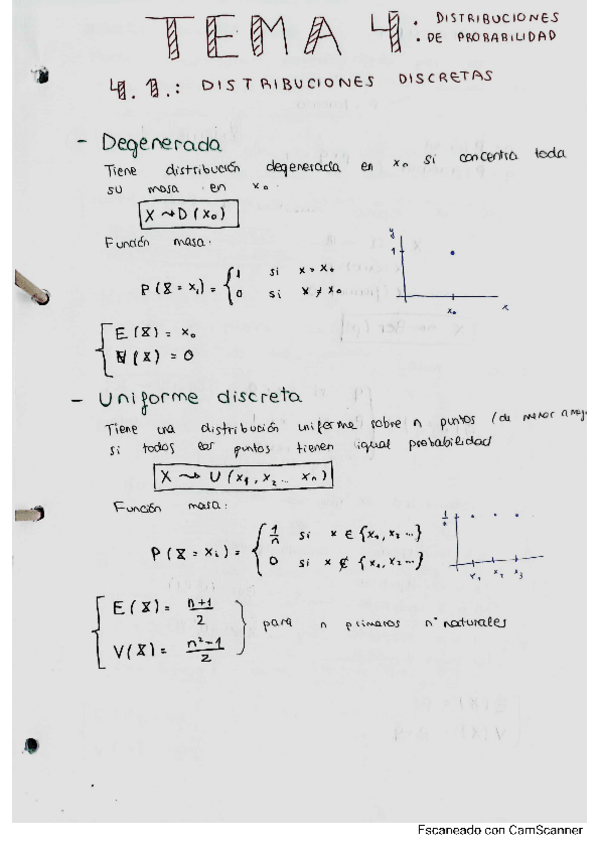 TEMA 4: DISTRIBUCIONES DE PROBABILIDAD
4.1.: DISTRIBUCIONES DISCRETAS
- Degenerada
Tiene distribución degenerada en x₀ si concentra toda
su masa en x₀.
X ⇝ D(x₀)
Función masa.
P(X = xᵢ) = { 1 si x = x₀
0 si x ≠ x₀
y
1
x₀
x
E(X) = x₀
V(X) = 0
- Uniforme discreta
Tiene una distribución uniforme sobre n puntos (de menor a
si todos los puntos tienen igual probabilidad
X ⇝ U(x₁, x₂ ... xₙ)
Función masa:
P(X = xᵢ) = { 1/n si x ∈ {x₁, x₂ ...}
0 si x ∉ {x₁, x₂ ...}
x₁ x₂ x₃
E(X) = n+1/2
V(X) = n²-1/2
para n primeros nº naturales
Escaneado con CamScanner